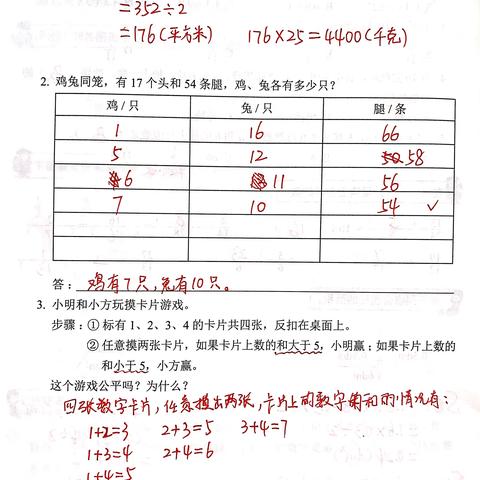 =352÷2
=176(平方米) 176×25=4400(千克)
2. 鸡兔同笼，有 17 个头和 54 条腿，鸡、兔各有多少只？
鸡 / 只 兔 / 只 腿 / 条
1 16 66
5 12 58
6 11 56
7 10 54 ✓
答：鸡有7只，兔有10只。
3. 小明和小方玩摸卡片游戏。
步骤：① 标有 1、2、3、4 的卡片共四张，反扣在桌面上。
② 任意摸两张卡片，如果卡片上数的和大于 5，小明赢；如果卡片上数的
和小于 5，小方赢。
这个游戏公平吗？为什么？
四张数字卡片，任意摸出两张，卡片上的数字的和的情况有：
1+2=3 2+3=5 3+4=7
1+3=4 2+4=6
1+4=5